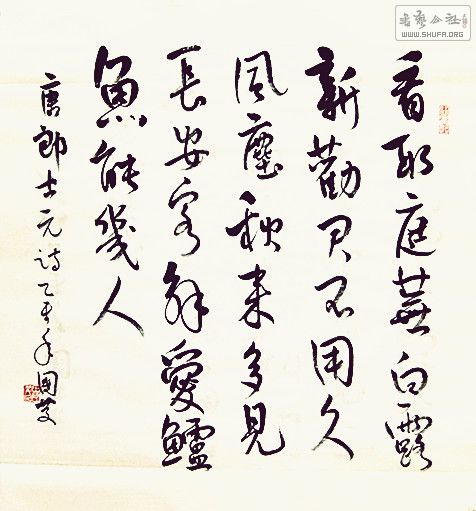 書藝公社
WWW.SHUFA.ORG
看取庭蕪白露
新勸君不用久
風塵秋来多見
長安客解愛鱸
魚能幾人
唐郎士元詩乙年國